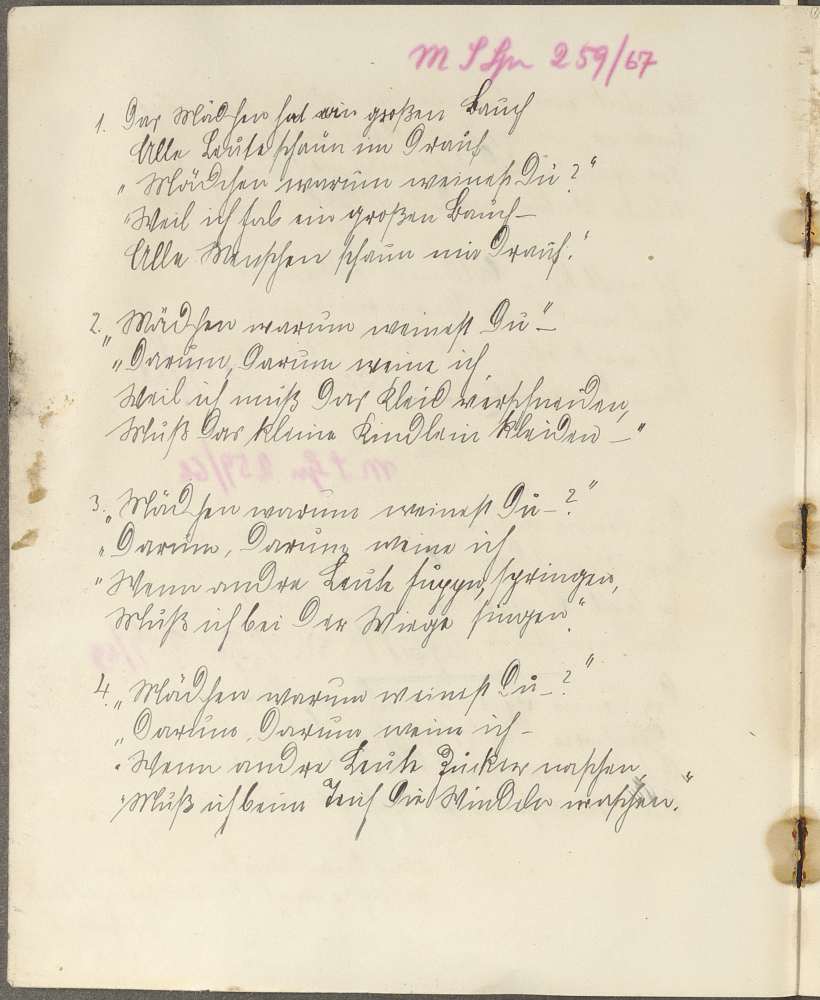 259/67
1. Das Mädchen hat ein großen Bauch
Alle Leute schaun im drauf
„Mädchen warum weinest Du?“
„Weil ich hab ein großen Bauch –
Alle Menschen schaun mir drauf.“
2. „Mädchen warum weinest Du“ –
„Darum, darum weine ich
Weil ich muß das Kleid verschneiden,
Muß das kleine Kindlein kleiden –“
3. „Mädchen warum weinest Du – ?“
„Darum, darum weine ich
„Wenn andre Leute huppn, springen,
Muß ich bei der Wiege singen.“
4. „Mädchen warum weinest Du – ?“
„Darum, darum weine ich –
„Wenn andre Leute Zucker naschen,
„Muß ich beim Teich die Windeln waschen.“